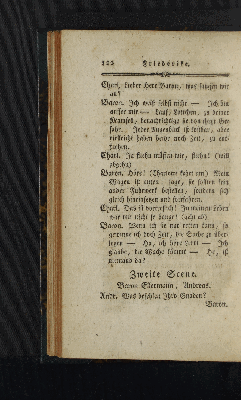 122 Friederike.
Charl. Lieber Herr Baron, was fehlet
Baron. Ich weiß selbst nicht — Ich bin
außer mir — Lauf, Lottchen, zu deiner
Fräulein, benachrichtige sie von ihrer Ge-
fahr. Jeder Augenblick ist kostbar, aber
vielleicht haben beide noch Zeit, zu ent-
fliehen.
Charl. Ja fliehn müssen wir, fliehn! (will
abgehn)
Baron. Höre! (Charlotte kehrt um) Mein
Wagen ist unten, sage, sie sollen kein
ander Fuhrwerk bestellen, sondern sich
gleich hineinsetzen und fortfahren.
Charl. Das ist vortreflich! In meinem Leben
war mir nicht so bange! (geht ab)
Baron. Wenn ich sie nur retten kann, so
gewinne ich doch Zeit, die Sache zu über-
legen — Ha, ich höre — Ich
glaube, die Wache kömmt — He, ist
niemand da?
Zweite Scene.
Baron Ellermann, Andreas.
Andr. Was befehlen Ihro Gnaden?
Baron.